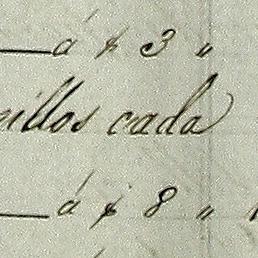 á $ 3 "
illos cada
á $ 8 "